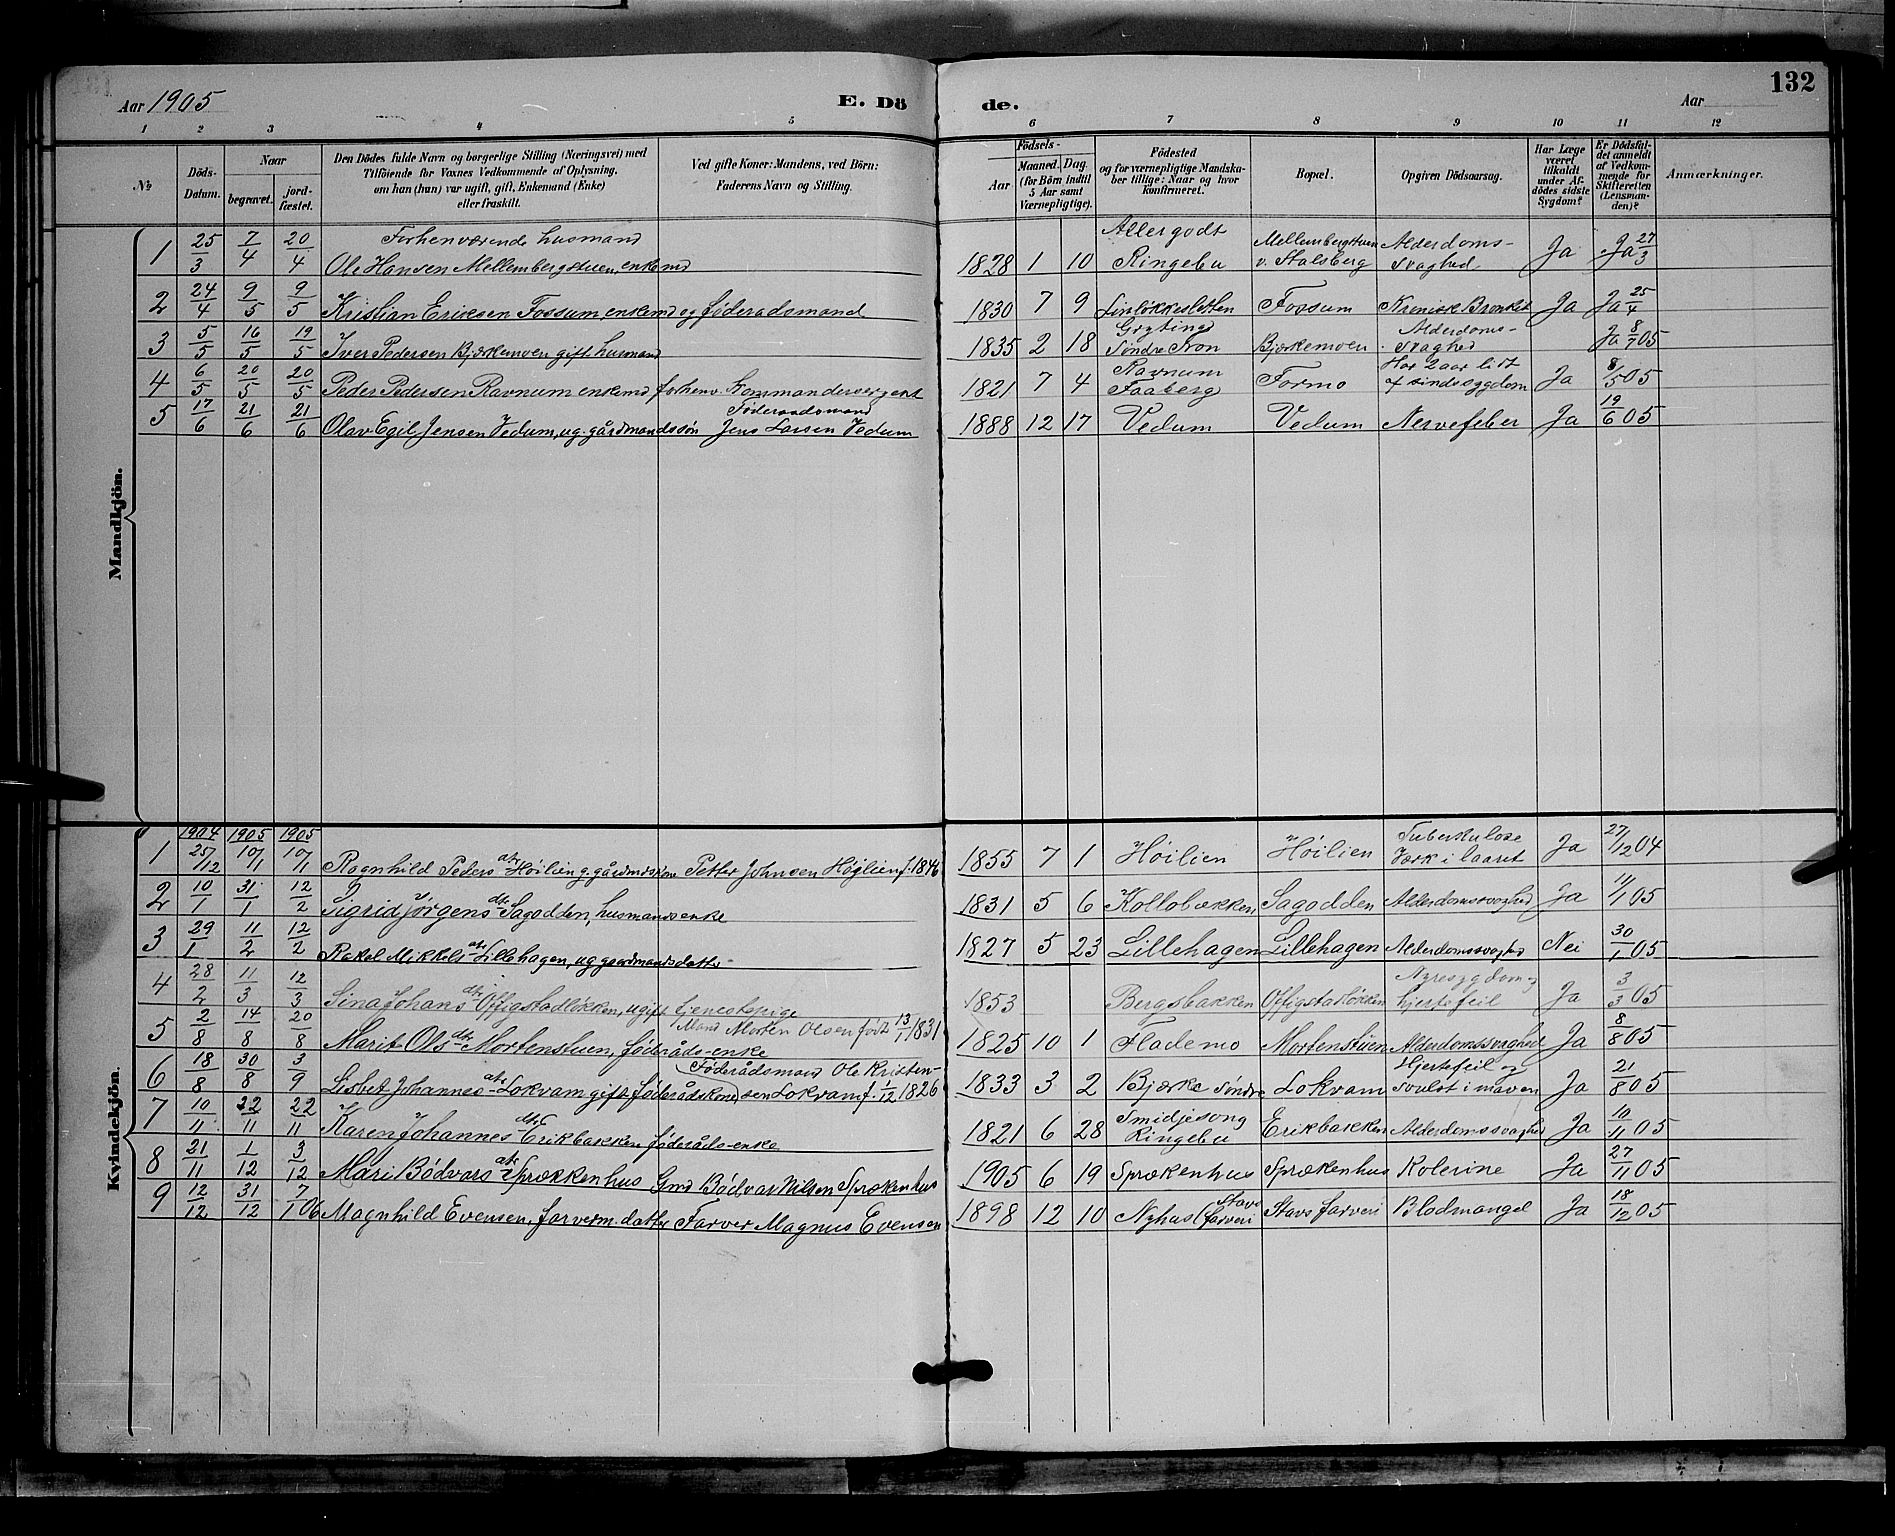 Aar 1905
E. Dö
de.
Aar
132
1 2 3 4 5 6 7 8 9 10 11 12
№
Döds-Datum.
Naar
begravet.
jord-fæstet.
Den Dödes fulde Navn og borgerlige Stilling (Næringsvei) med
Tilföiende for Voxnes Vedkommende af Oplysning,
om han (hun) var ugift, gift, Enkemand (Enke)
eller fraskilt.
Ved gifte Koner: Mandens, ved Börn:
Faderens Navn og Stilling.
Födsels-
Aar
Maaned. Dag.
(for Börn indtil
5 Aar samt
Værnepligtige).
Födested
og for værnepligtige Mandska-
ber tillige: Naar og hvor
konfirmeret.
Bopæl.
Opgiven Dödsaarsag.
Har Læge
været
tilkaldt
under Af-
dödes sidste
Sygdom?
Er Dödsfal-
det anmeldt
af Vedkom-
mende for
Skifteretten
(Lensman-
den)?
Anmærkninger.
Mandkjön.
1 25/3 7/4 20/4 Forhenværende husmand
Ole Hansen Mellembergstuen, enkemd 1828 1 10 Allergodt Ringebu Mellembergstuen v. Stalsberg Alderdoms-svaghed Ja Ja 27/3
2 24/4 9/5 9/5 Kristian Eriksen Fossum, enkemd og føderadsmand 1830 7 9 Linløkkesletten Fossum Kronisk Bronkit Ja Ja 25/4
3 5/5 16/5 19/5 Iver Pedersen Bjerkemoen gift husmand 1835 2 18 Gryting Søndre Fron Bjerkemoen Alderdoms-svaghed Ja 8/7 05
4 6/5 20/5 20/5 Peder Pedersen Ravnum enkemd forhenv. Kommandersergent 1821 7 4 Ravnum Faaberg Formo Har 2 aar lidt af sindssygdom Ja 8/5 05
5 17/6 21/6 21/6 Olav Egil Jensen Vedum, ug. gårdmandssøn Føderaadsmand Jens Larsen Vedum 1888 12 17 Vedum Vedum Nervefeber Ja 19/6 05
Kvindekjön.
1904 1905 1905
1 25/12 10/1 10/1 Ragnhild Pedersdtr Høilien g. gårdmdskone Petter Johnsen Høglien f. 1846 1855 7 1 Høilien Høilien Tuberkulose Værk i laaret Ja 27/12 04
2 10/1 31/1 12/2 Sigrid Jørgensdtr Sagodden, husmandsenke 1831 5 6 Kollobækken Sagodden Alderdomssvaghed Ja 11/1 05
3 29/1 11/2 12/2 Rakel Mikkelsdtr Lillehagen, ug gaardmandsdatter 1827 5 23 Lillehagen Lillehagen Alderdomssvaghed Nei 30/1 05
4 28/2 11/3 12/3 Sina Johansdtr Offigstadløkken, ugift tjenestepige 1853 Bergsbakken Offigstadløkken Nyresygdom og hjertefeil Ja 3/3 05
5 2/8 14/8 20/8 Marit Olsdtr Mortenstuen, føderåds-enke Mand Morten Olsen født 13/1 1831 1825 10 1 Flademo Mortenstuen Alderdomssvaghed Ja 8/8 05
6 18/8 30/8 3/9 Lisbet Johannesdtr Lokvam gift føderådskone Føderådsmand Ole Kristensen Lokvam f. 1/12 1826 1833 3 2 Bjærke søndre Lokvam Hjertefeil og svulst i maven Ja 21/8 05
7 10/11 22/11 22/11 Karen Johannesdtr Erikbakken føderåds-enke 1821 6 28 Smidjesong Ringebu Erikbakken Alderdomssvaghed Ja 10/11 05
8 21/11 1/12 3/12 Mari Bødvarsdtr Sprækkenhus Gmd Bødvar Nilsen Sprækenhus 1905 6 19 Sprækenhus Sprækenhus Kolerine Ja 27/11 05
9 12/12 31/12 7/1 06 Magnhild Evensen, farverm. datter Farver Magnus Evensen 1898 12 10 Nyhus (Stavs farveri Stavs farveri Blodmangel Ja 18/12 05